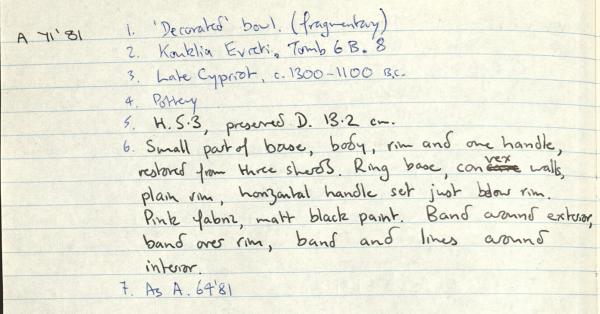 A 71'81
1. 'Decorated' bowl. (fragmentary)
2. Kouklia Evreti, Tomb 6 B. 8
3. Late Cypriot, c. 1300-1100 B.C.
4. Pottery
5. H. 5.3, preserved D. 13.2 cm.
6. Small part of base, body, rim and one handle,
restored from three sherds. Ring base, convex walls,
plain rim, horizontal handle set just below rim.
Pink fabric, matt black paint. Band around exterior,
band over rim, band and lines around
interior.
7. As A. 64'81